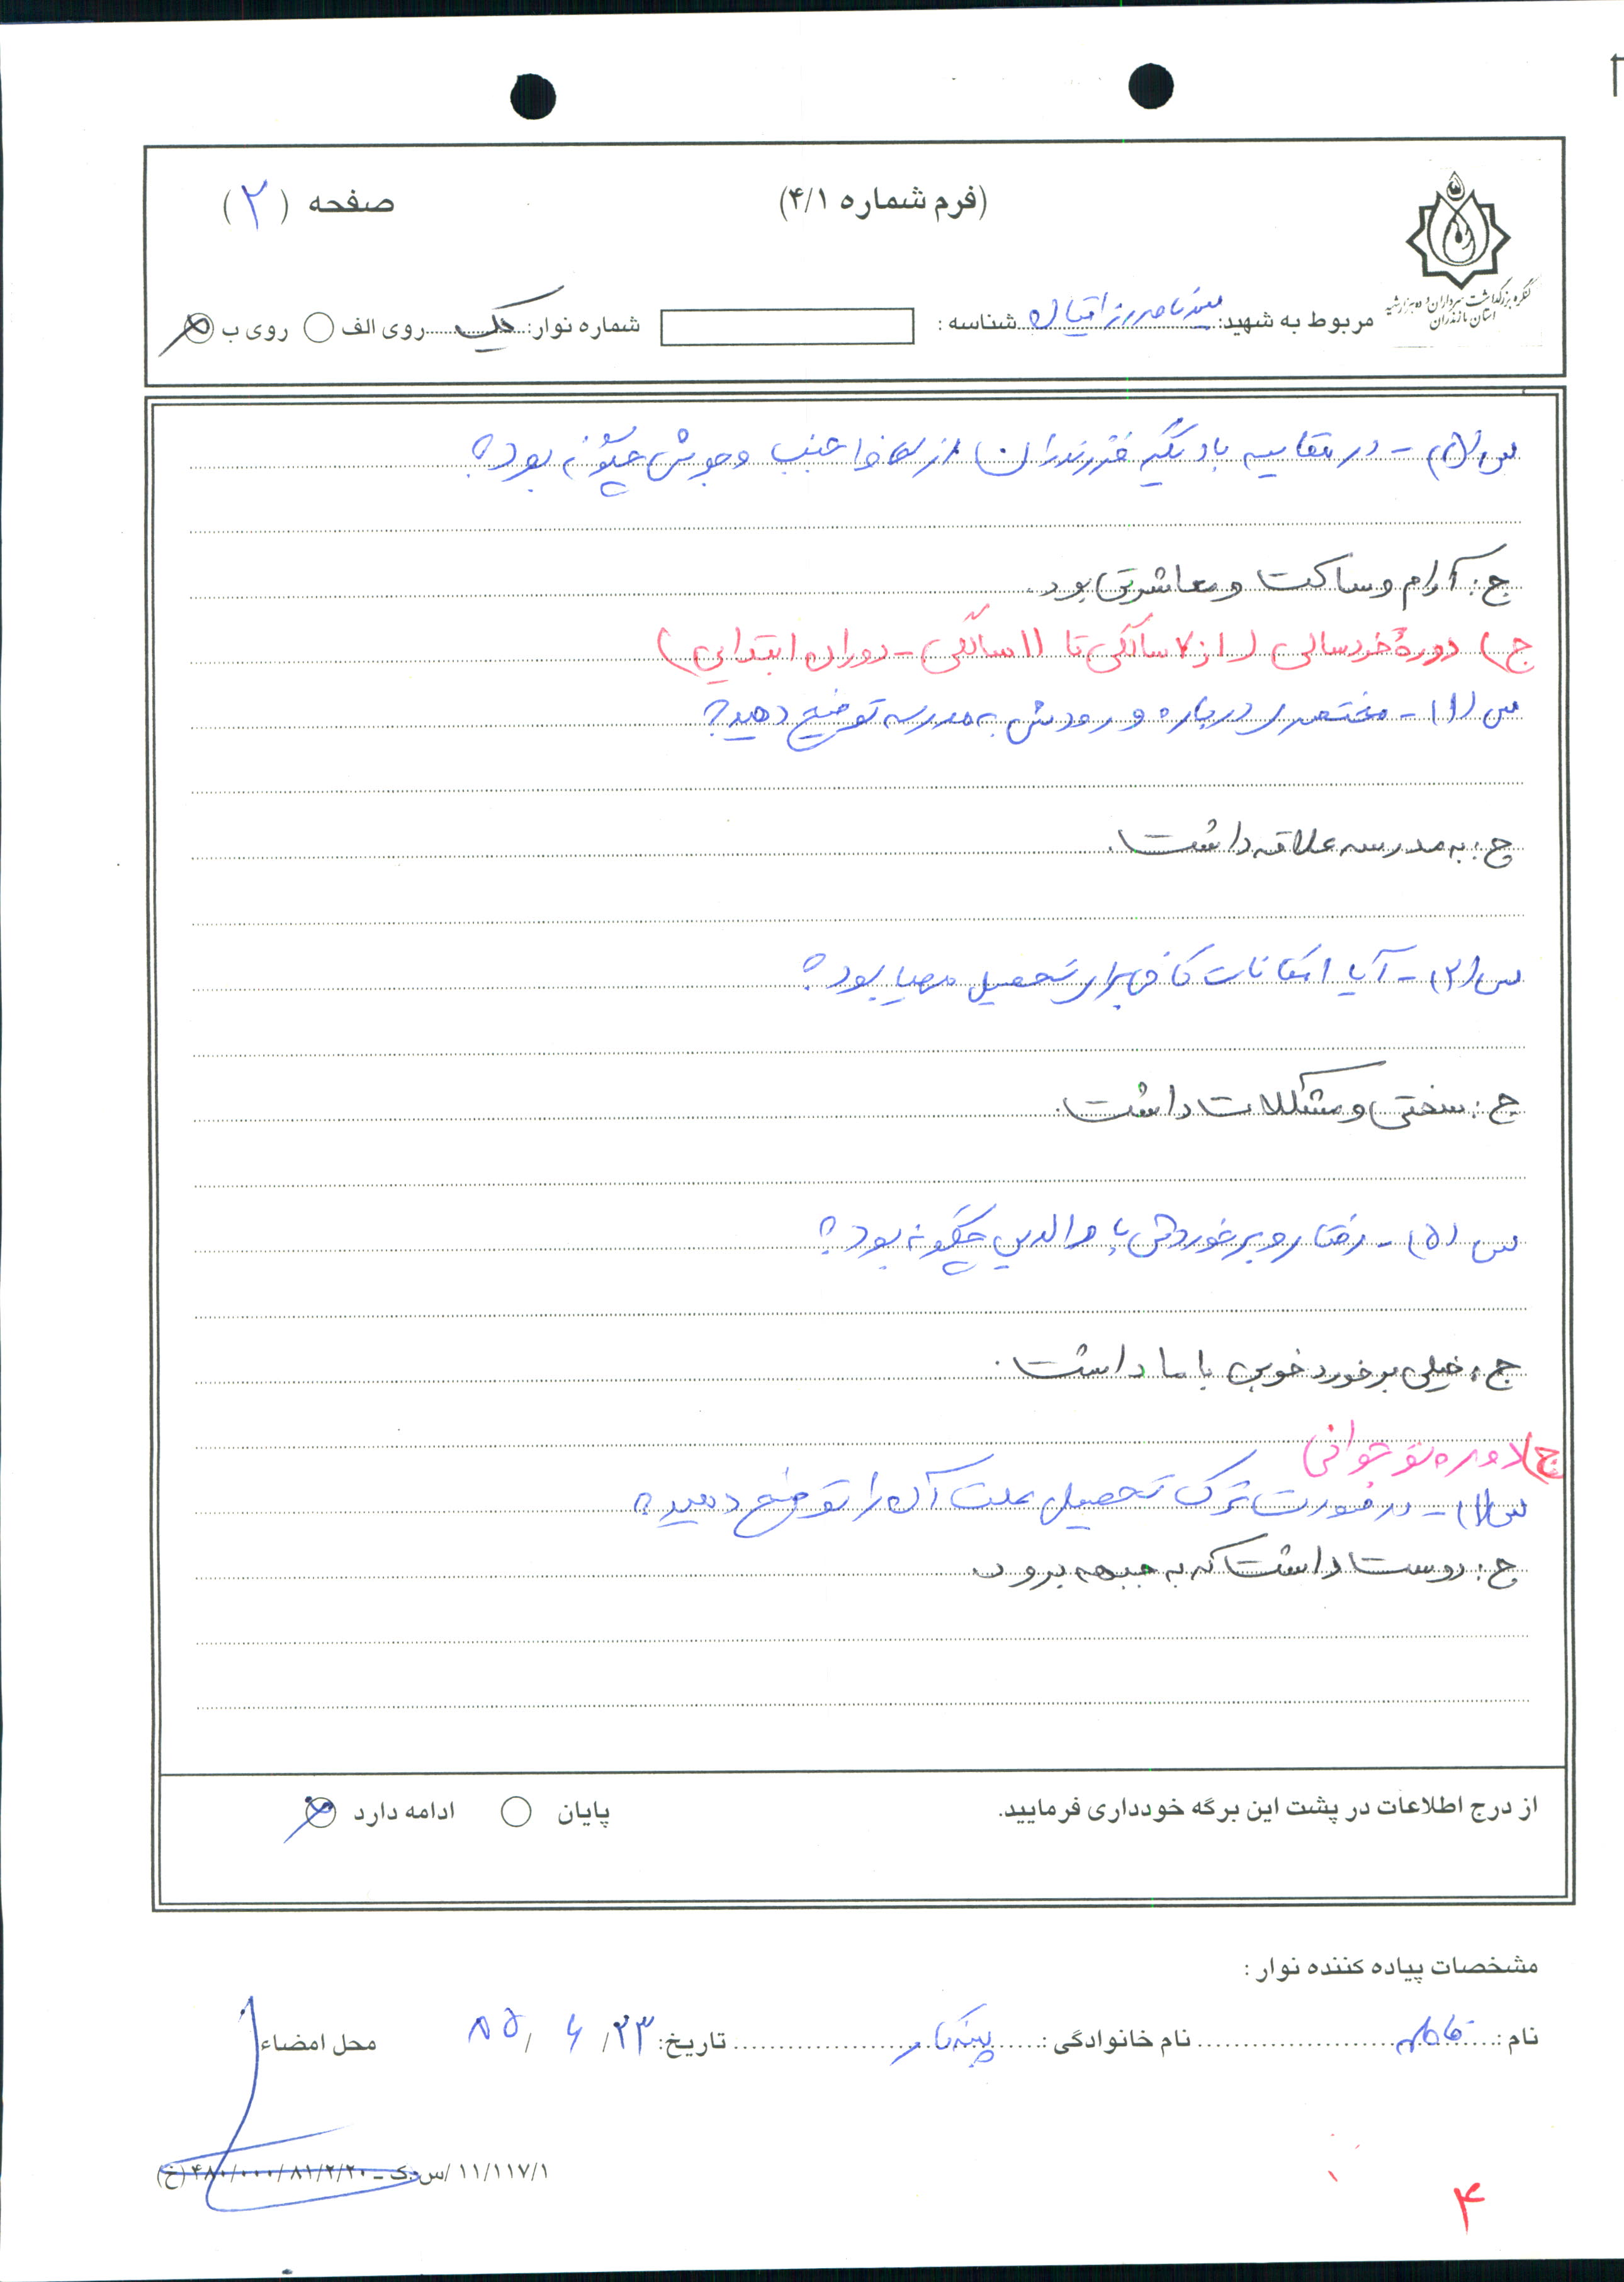 (فرم شماره ۴/۱)
صفحه (۲)
کنگره بزرگداشت سرداران و ده هزار شهید
استان مازندران
مربوط به شهید: شناسه: شماره نوار: یک روی الف روی ب
س(۵)- در مقایسه با دیگر فرزندان از لحاظ جنب و جوش چگونه بود؟
ج: آرام و ساکت و معاشرتی بود.
ج) دورهٔ خردسالی (از ۷ سالگی تا ۱۱ سالگی - دوران ابتدایی)
س(۱)- مختصری درباره ورودش به مدرسه توضیح دهید؟
ج: به مدرسه علاقه داشت.
س(۲)- آیا امکانات کافی برای تحصیل مهیا بود؟
ج: سختی و مشکلات داشت.
س(۵)- رفتار و برخوردش با والدین چگونه بود؟
ج: خیلی برخورد خوبی با ما داشت.
ج) دوره نوجوانی
س(۱)- در صورت ترک تحصیل علت آن را توضیح دهید؟
ج: دوست داشت که به جبهه برود.
از درج اطلاعات در پشت این برگه خودداری فرمایید.
پایان ادامه دارد
مشخصات پیاده کننده نوار:
نام: فاطمه نام خانوادگی: تاریخ: ۲۳/ ۶/ ۸۵ محل امضاء
۱۱/۱۱۷/۱/س ک - ۴۸۰/۰۰۰/۸۱/۲/۲۰ (خ)
۴